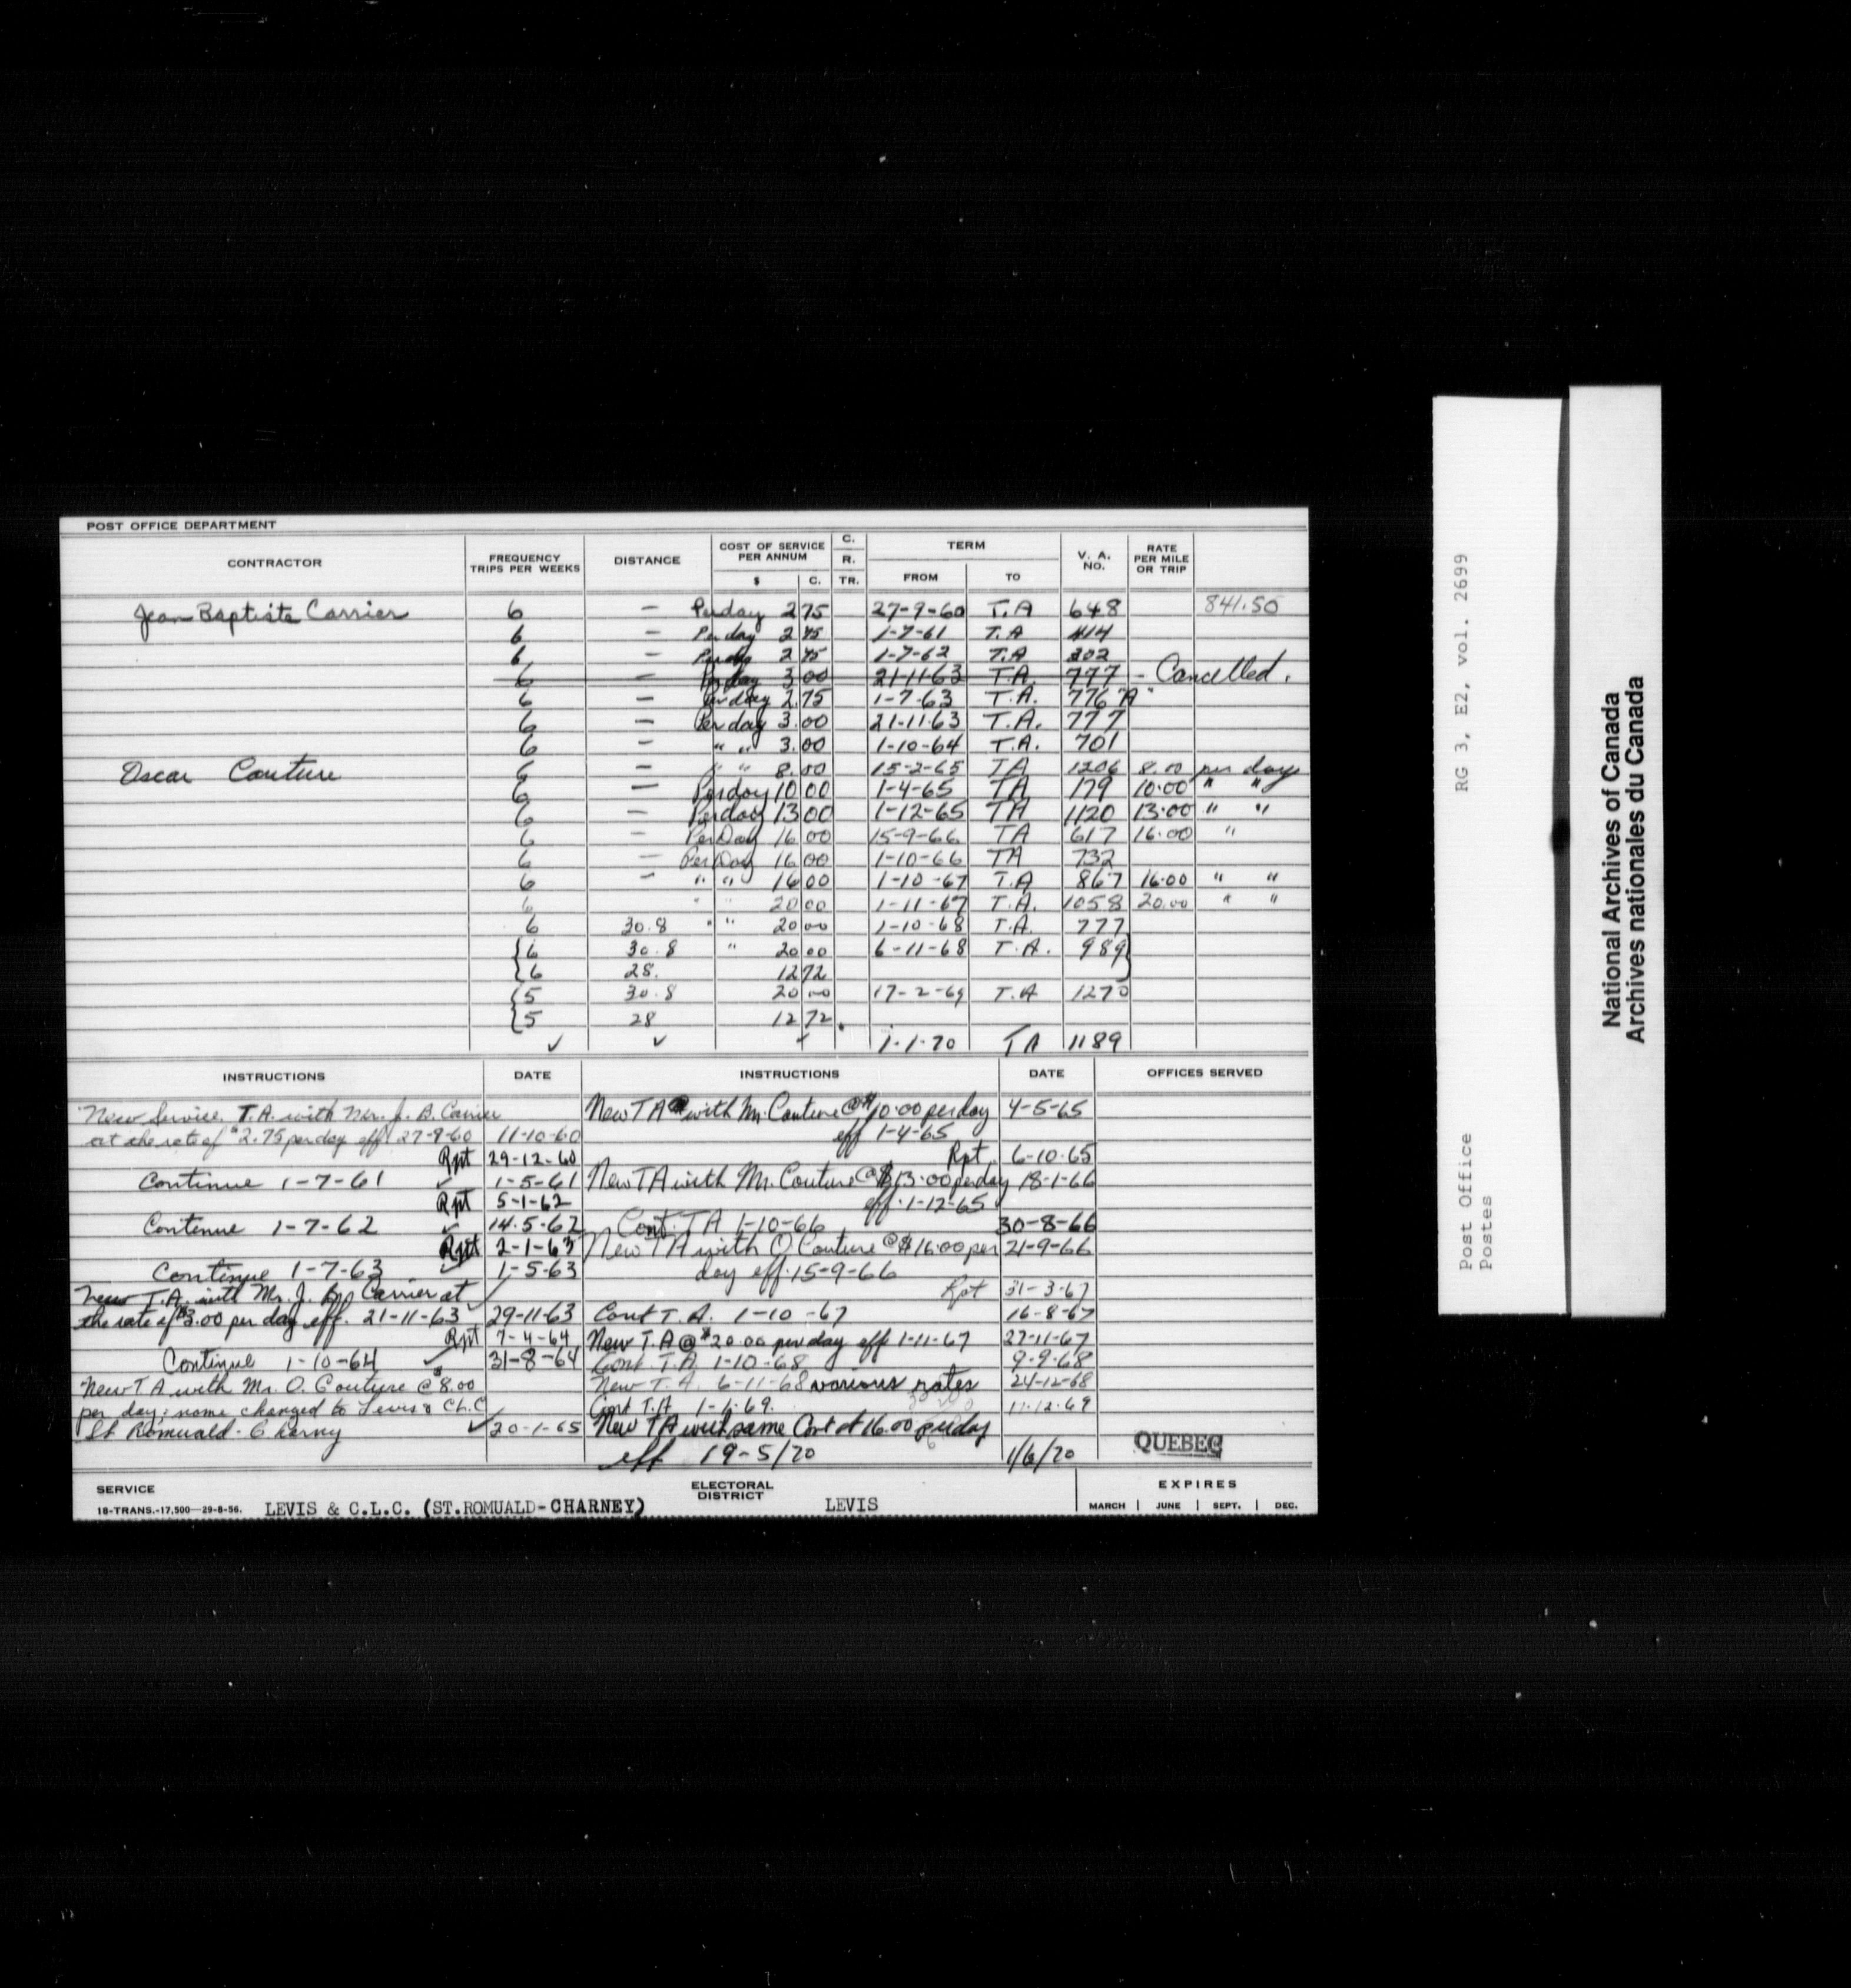 POST OFFICE DEPARTMENT
CONTRACTOR FREQUENCY TRIPS PER WEEKS DISTANCE COST OF SERVICE PER ANNUM $ C. C. R. TR. TERM FROM TO V. A. NO. RATE PER MILE OR TRIP
Jean Baptiste Carrier 6 — Per day 2 75 27-9-60 T.A 648 841.50
6 — Per day 2 75 1-7-61 T.A 414
6 — Per day 2 75 1-7-62 T.A 202
6 — Per day 3 00 21-11-63 T.A. 777 - Cancelled.
6 — Per day 2.75 1-7-63 T.A. 776 "A"
6 — Per day 3.00 21-11-63 T.A. 777
6 — " " 3.00 1-10-64 T.A. 701
Oscar Couture 6 — " " 8.00 15-2-65 TA 1206 8.00 per day
6 — Per day 10 00 1-4-65 TA 179 10.00 " "
6 — Per day 13 00 1-12-65 TA 1120 13.00 " "
6 — Per Day 16 00 15-9-66 TA 617 16.00 "
6 — Per Day 16 00 1-10-66 TA 732
6 — " " 16 00 1-10-67 T.A 867 16.00 " "
6 " " 20 00 1-11-67 T.A. 1058 20.00 " "
6 30.8 " " 20 00 1-10-68 T.A. 777
{6 30.8 " 20 00 6-11-68 T.A. 989}
{6 28. 12 72
{5 30.8 20 00 17-2-69 T.A 1270
{5 28 12 72.
✓ ✓ ✓ 1-1-70 TA 1189
INSTRUCTIONS DATE INSTRUCTIONS DATE OFFICES SERVED
New Service. T.A. with Mr. J. B. Carrier
at the rate of $2.75 per day eff. 27-9-60 11-10-60
Rpt 29-12-60
Continue 1-7-61 ✓ 1-5-61
Rpt 5-1-62
Contenue 1-7-62 ✓ 14-5-62
Rpt 2-1-63
Continue 1-7-63 ✓ 1-5-63
New T.A. with Mr. J. Bp Carrier at
the rate of $3.00 per day eff. 21-11-63 ✓ 29-11-63
Rpt 7-4-64
Continue 1-10-64 ✓ 31-8-64
New T A with Mr. O. Couture @ $8.00
per day; name changed to Levis & Ch.C
St Romuald - Charny ✓ 20-1-65
New TA with Mr. Couture @ $10.00 per day 4-5-65
eff 1-4-65
Rpt. 6-10-65
New TA with Mr. Couture @ $13.00 per day 18-1-66
eff. 1-12-65
Cont. TA 1-10-66 30-8-66
New TA with O Couture @ $16.00 per 21-9-66
day eff. 15-9-66
Rpt 31-3-67
Cont T.A. 1-10-67 16-8-67
New T.A @ $20.00 per day eff 1-11-67 27-11-67
Cont. T.A. 1-10-68 9-9-68
New T.A. 6-11-68 various rates 24-12-68
Cont T.A 1-1-69. 11-12-69
New TA with same Cont at 16.00 per day
eff 19-5/70 1/6/70
QUEBEC
SERVICE
18-TRANS.-17,500—29-8-56. LEVIS & C.L.C. (ST.ROMUALD-CHARNEY)
ELECTORAL DISTRICT LEVIS
EXPIRES
MARCH | JUNE | SEPT. | DEC.
RG 3, E2, vol. 2699
Post Office
Postes
National Archives of Canada
Archives nationales du Canada